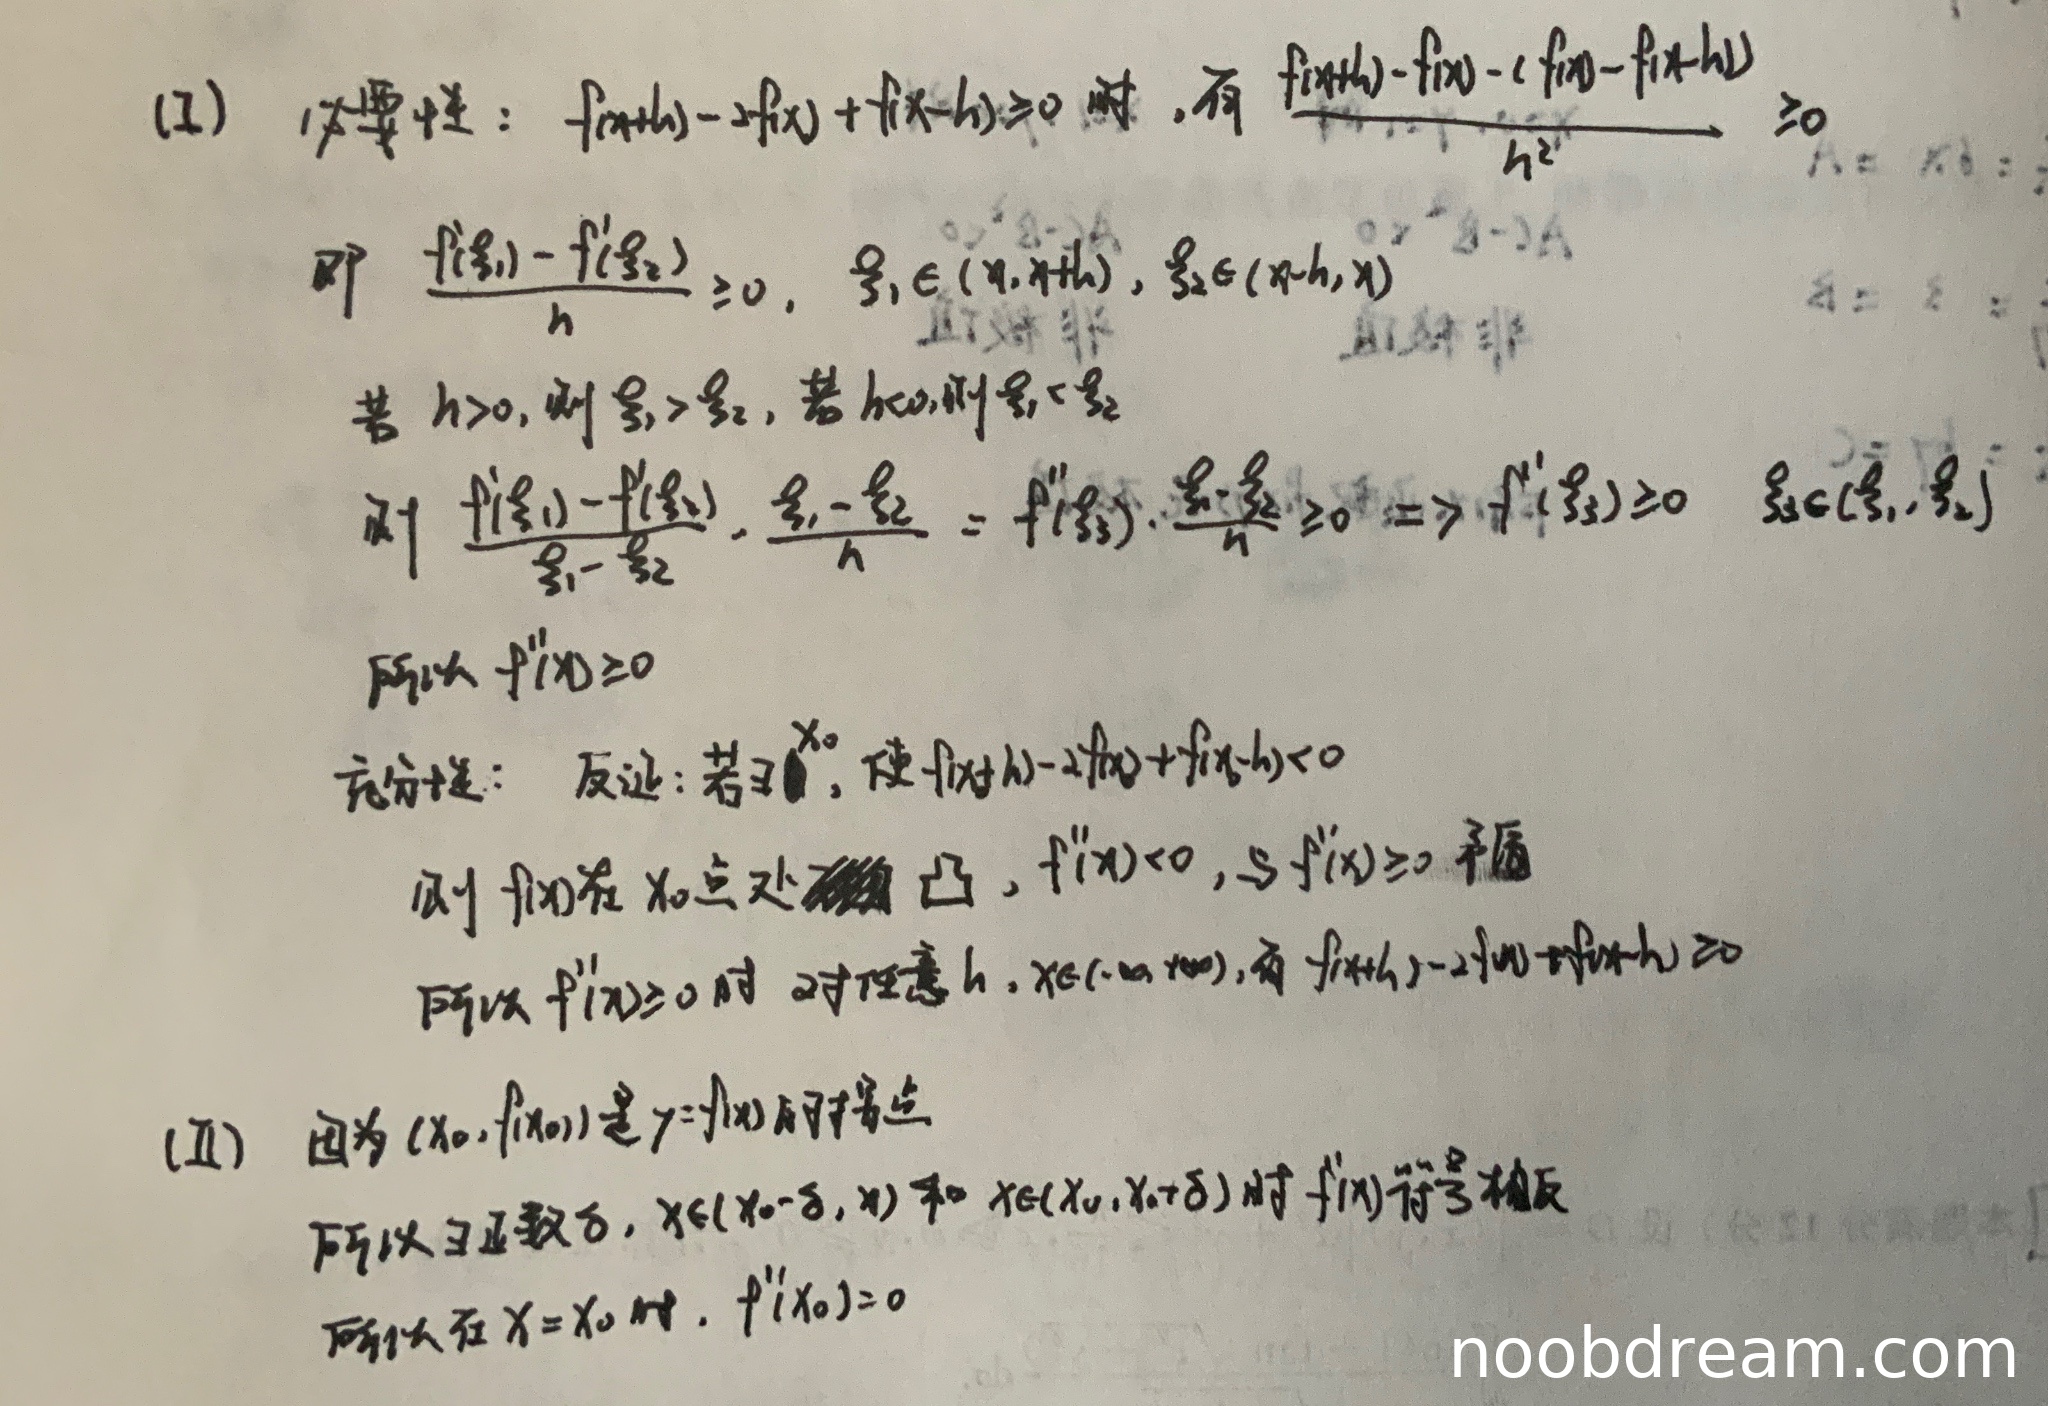 (I) 必要性： f(x+h)-2f(x)+f(x-h)≥0 时，有 \frac{f(x+h)-f(x)-(f(x)-f(x-h))}{h²} ≥0
即 \frac{f'(ξ₁)-f'(ξ₂)}{h} ≥0， ξ₁∈(x,x+h)，ξ₂∈(x-h,x)
若 h>0，则 ξ₁>ξ₂，若 h<0，则 ξ₁<ξ₂
则 \frac{f'(ξ₁)-f'(ξ₂)}{ξ₁-ξ₂}·\frac{ξ₁-ξ₂}{h} = f''(ξ₃)·\frac{ξ₁-ξ₂}{h} ≥0 => f''(ξ₃)≥0 ξ₃∈(ξ₁,ξ₂)
所以 f''(x)≥0
充分性： 反证：若∃x₀，使 f(x₀+h)-2f(x₀)+f(x₀-h)<0
则 f(x)在 x₀点处 凸，f''(x)<0，与 f''(x)≥0 矛盾
所以 f''(x)≥0 时 对任意 h，x∈(-∞,+∞)，有 f(x+h)-2f(x)+f(x-h)≥0
(II) 因为 (x₀,f(x₀)) 是 y=f(x) 的拐点
所以∃正数δ，x∈(x₀-δ,x) 和 x∈(x₀,x₀+δ) 时 f''(x) 符号相反
所以在 x=x₀ 时，f''(x₀)=0
noobdream.com